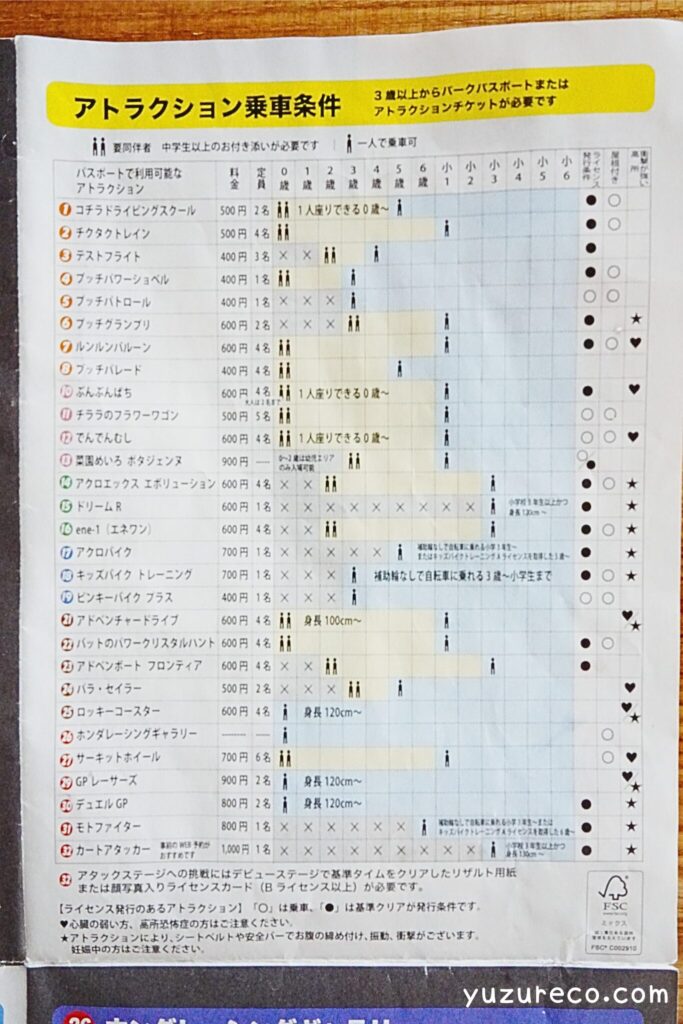 アトラクション乗車条件
3歳以上からパークパスポートまたは
アトラクションチケットが必要です
要同伴者 中学生以上のお付き添いが必要です | 一人で乗車可
パスポートで利用可能な
アトラクション
料金 定員 0歳 1歳 2歳 3歳 4歳 5歳 6歳 小1 小2 小3 小4 小5 小6 ライセンス発行条件 屋根付き 高所 衝撃が強い
1 コチラドライビングスクール 500円 2名 1人座りできる0歳〜 ● ○
2 チクタクトレイン 500円 4名 ● ○
3 テストフライト 400円 3名 × × ●
4 プッチパワーショベル 400円 1名 ● ○
5 プッチパトロール 400円 1名 × × × ○ ○
6 プッチグランプリ 600円 2名 × × × ● ★
7 ルンルンバルーン 600円 4名 ● ○ ♥
8 プッチパレード 400円 4名
10 ぶんぶんばち 600円 4名 1人座りできる0歳〜 ● ♥
大人は2名まで
11 チララのフラワーワゴン 500円 5名 ○ ○
12 でんでんむし 600円 4名 1人座りできる0歳〜 ○ ○ ♥
13 菜園めいろ ポタジェンヌ 900円 ---- 0〜2歳は幼児エリア
のみ入場可能 ○ ●
14 アクロエックス エボリューション 600円 4名 × × ● ○ ★
15 ドリームR 600円 1名 × × × × × × × × × 小学校3年生以上かつ
身長120cm〜 ● ★
16 ene-1（エネワン） 600円 4名 × × ● ○ ★
17 アクロバイク 700円 1名 × × × × × 補助輪なしで自転車に乗れる小学1年生〜
またはキッズバイクトレーニングAライセンスを取得した3歳〜 ● ★
18 キッズバイク トレーニング 700円 1名 × × × 補助輪なしで自転車に乗れる3歳〜小学生まで ● ○ ★
19 ピンキーバイク プラス 400円 1名 × × × ○ ○
21 アドベンチャードライブ 600円 4名 身長100cm〜 ♥ ★
22 バットのパワークリスタルハント 600円 4名 ● ○
23 アドベンボート フロンティア 600円 4名 × × ●
24 パラ・セイラー 500円 2名 × × × ♥
25 ロッキーコースター 600円 4名 身長120cm〜 ♥ ★
26 ホンダレーシングギャラリー -------- ---- ○
27 サーキットホイール 700円 6名 ○ ♥
29 GPレーサーズ 900円 2名 身長120cm〜 ♥ ★
30 デュエルGP 800円 2名 身長120cm〜 ● ★
31 モトファイター 800円 1名 × × × × × × 補助輪なしで自転車に乗れる小学1年生〜または
キッズバイクトレーニングAライセンスを取得した6歳〜 ● ★
32 カートアタッカー 事前のWEB予約が
おすすめです 1,000円 1名 × × × × × × × × × 小学校3年生以上かつ
身長130cm〜 ● ★
32 アタックステージへの挑戦にはデビューステージで基準タイムをクリアしたリザルト用紙
または顔写真入りライセンスカード（Bライセンス以上）が必要です。
【ライセンス発行のあるアトラクション】「○」は乗車、「●」は基準クリアが発行条件です。
♥心臓の弱い方、高所恐怖症の方はご注意ください。
★アトラクションにより、シートベルトや安全バーでお腹の締め付け、振動、衝撃がございます。
妊娠中の方はご注意ください。
FSC
www.fsc.org
ミックス
FSC® C002910
yuzureco.com